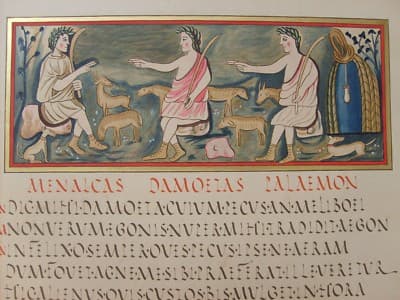 MENALCAS DAMOETAS PALAEMON
DIC·MIHI·DAMOETA·CVIVM·PECVS·AN·MELIBOEI
NON·VERVM·EGONIS·NVPER·MIHI·TRADIDIT·AEGON
INFELIX·O·SEMPER·OVES·PECVS·IPSE·NEAERAM
DVM·FOVET·AC·NE·ME·SIBI·PRAEFERAT·ILLE·VERETVR
HIC·ALIENVS·OVIS·CVSTOS·BIS·MVLGET·IN·HORA